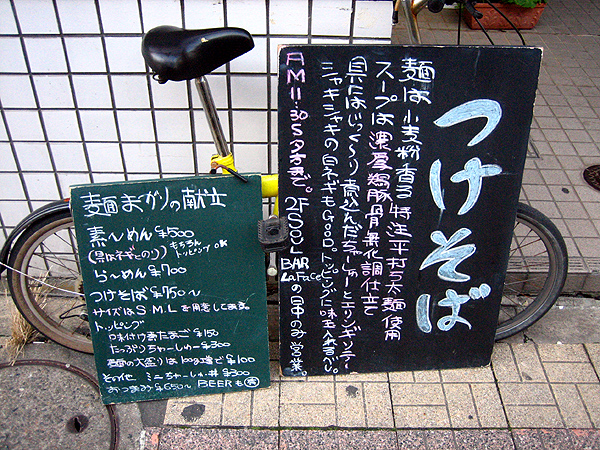 つけそば
麺は小麦粉香る特注平打ち太麺使用
スープは濃厚鶏豚骨無化調仕立て
具にはじっく〜り煮込んだちゃーしゅーとエリンギメンマ
シャキシャキの白ネギもGOOD。トッピングに味玉入れて
AM11:30S夕方まで。2F SOUL BAR LaFaceの昼中のみ営業。
麺あがりの献立
素〜めん ¥500
(具はネギとのり) もちろんトッピングOK
ら〜めん ¥700
つけそば ¥750〜
サイズはS.M.Lを用意してます。
トッピング
味付けあたまご ¥150
たっぷりちゃーしゅー ¥300
麺の大盛りは100g増で ¥100
その他 ミニちゃーしゅー丼 ¥300
おつまみ ¥650〜 BEERも有